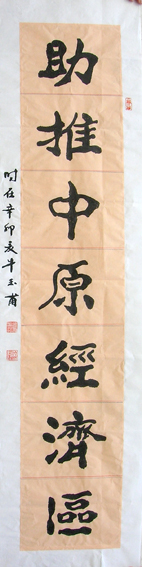 助推中原經濟區
時在辛卯夏牛玉甫